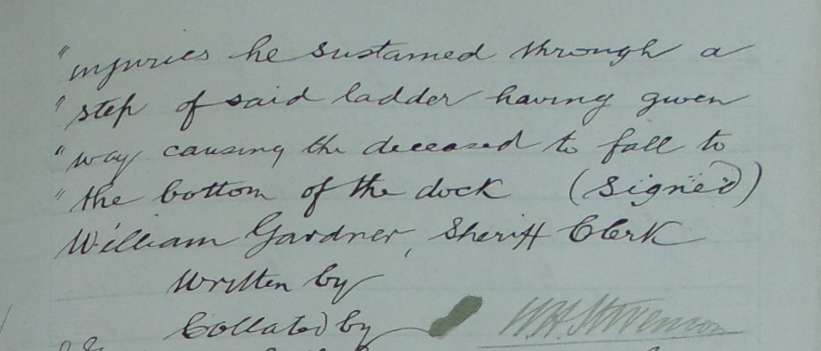 "injuries he sustained through a
"step of said ladder having given
"way causing the deceased to fall to
"the bottom of the dock (Signed)
William Gardner, Sheriff Clerk
Written by
Collated by W.H. Stevenson